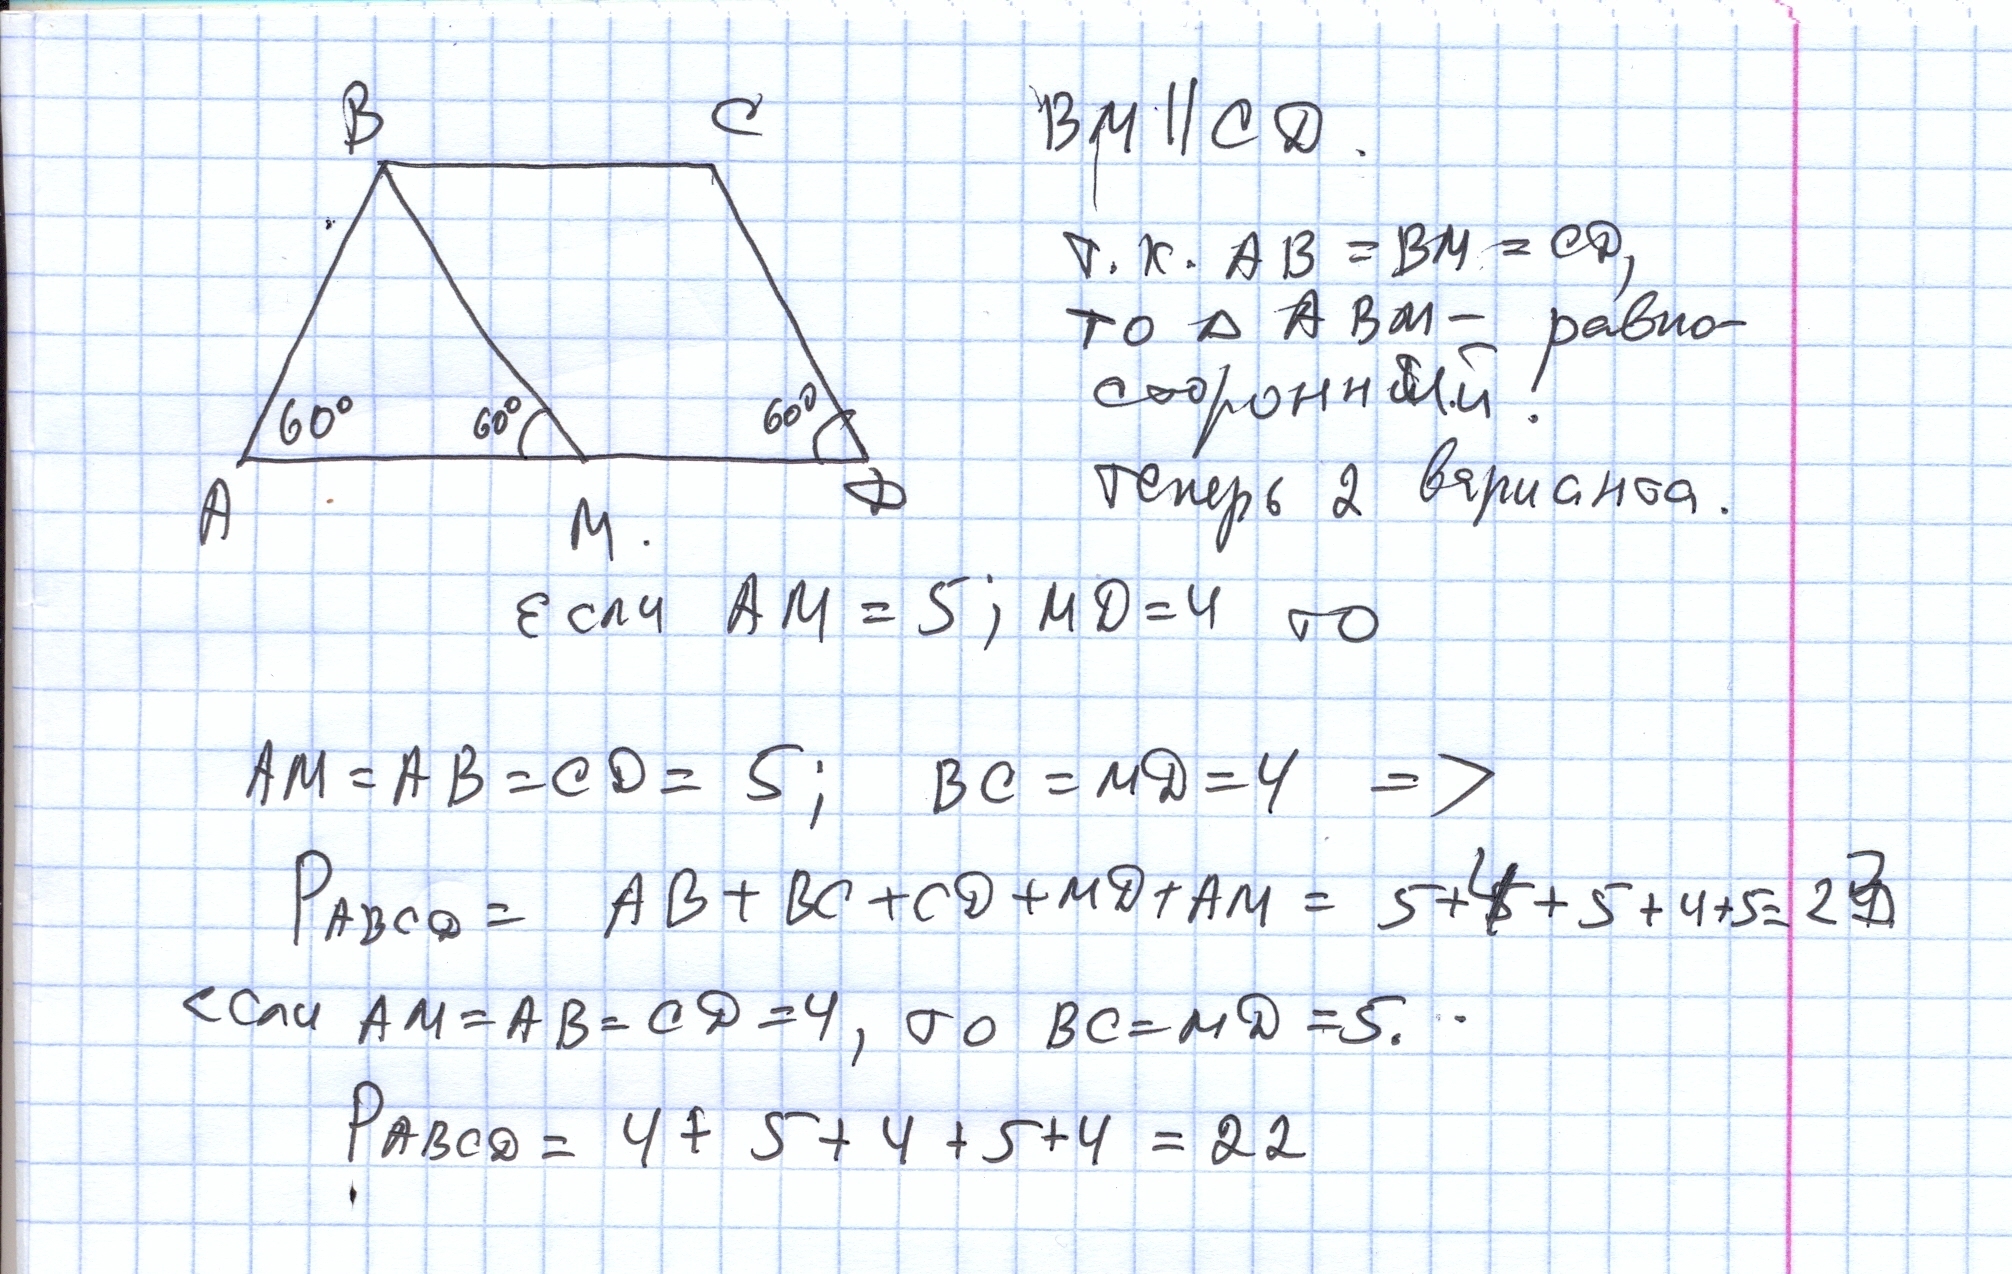 B C
60° 60° 60°
A M. D
BM || CD.
т.к. AB = BM = CD,
то Δ ABM – равно-
сторонний!
теперь 2 варианта.
Если AM = 5; MD = 4 то
AM = AB = CD = 5; BC = MD = 4 =>
PABCD = AB + BC + CD + MD + AM = 5+4+5+4+5= 23
если AM = AB = CD = 4, то BC = MD = 5.
PABCD = 4 + 5 + 4 + 5 + 4 = 22